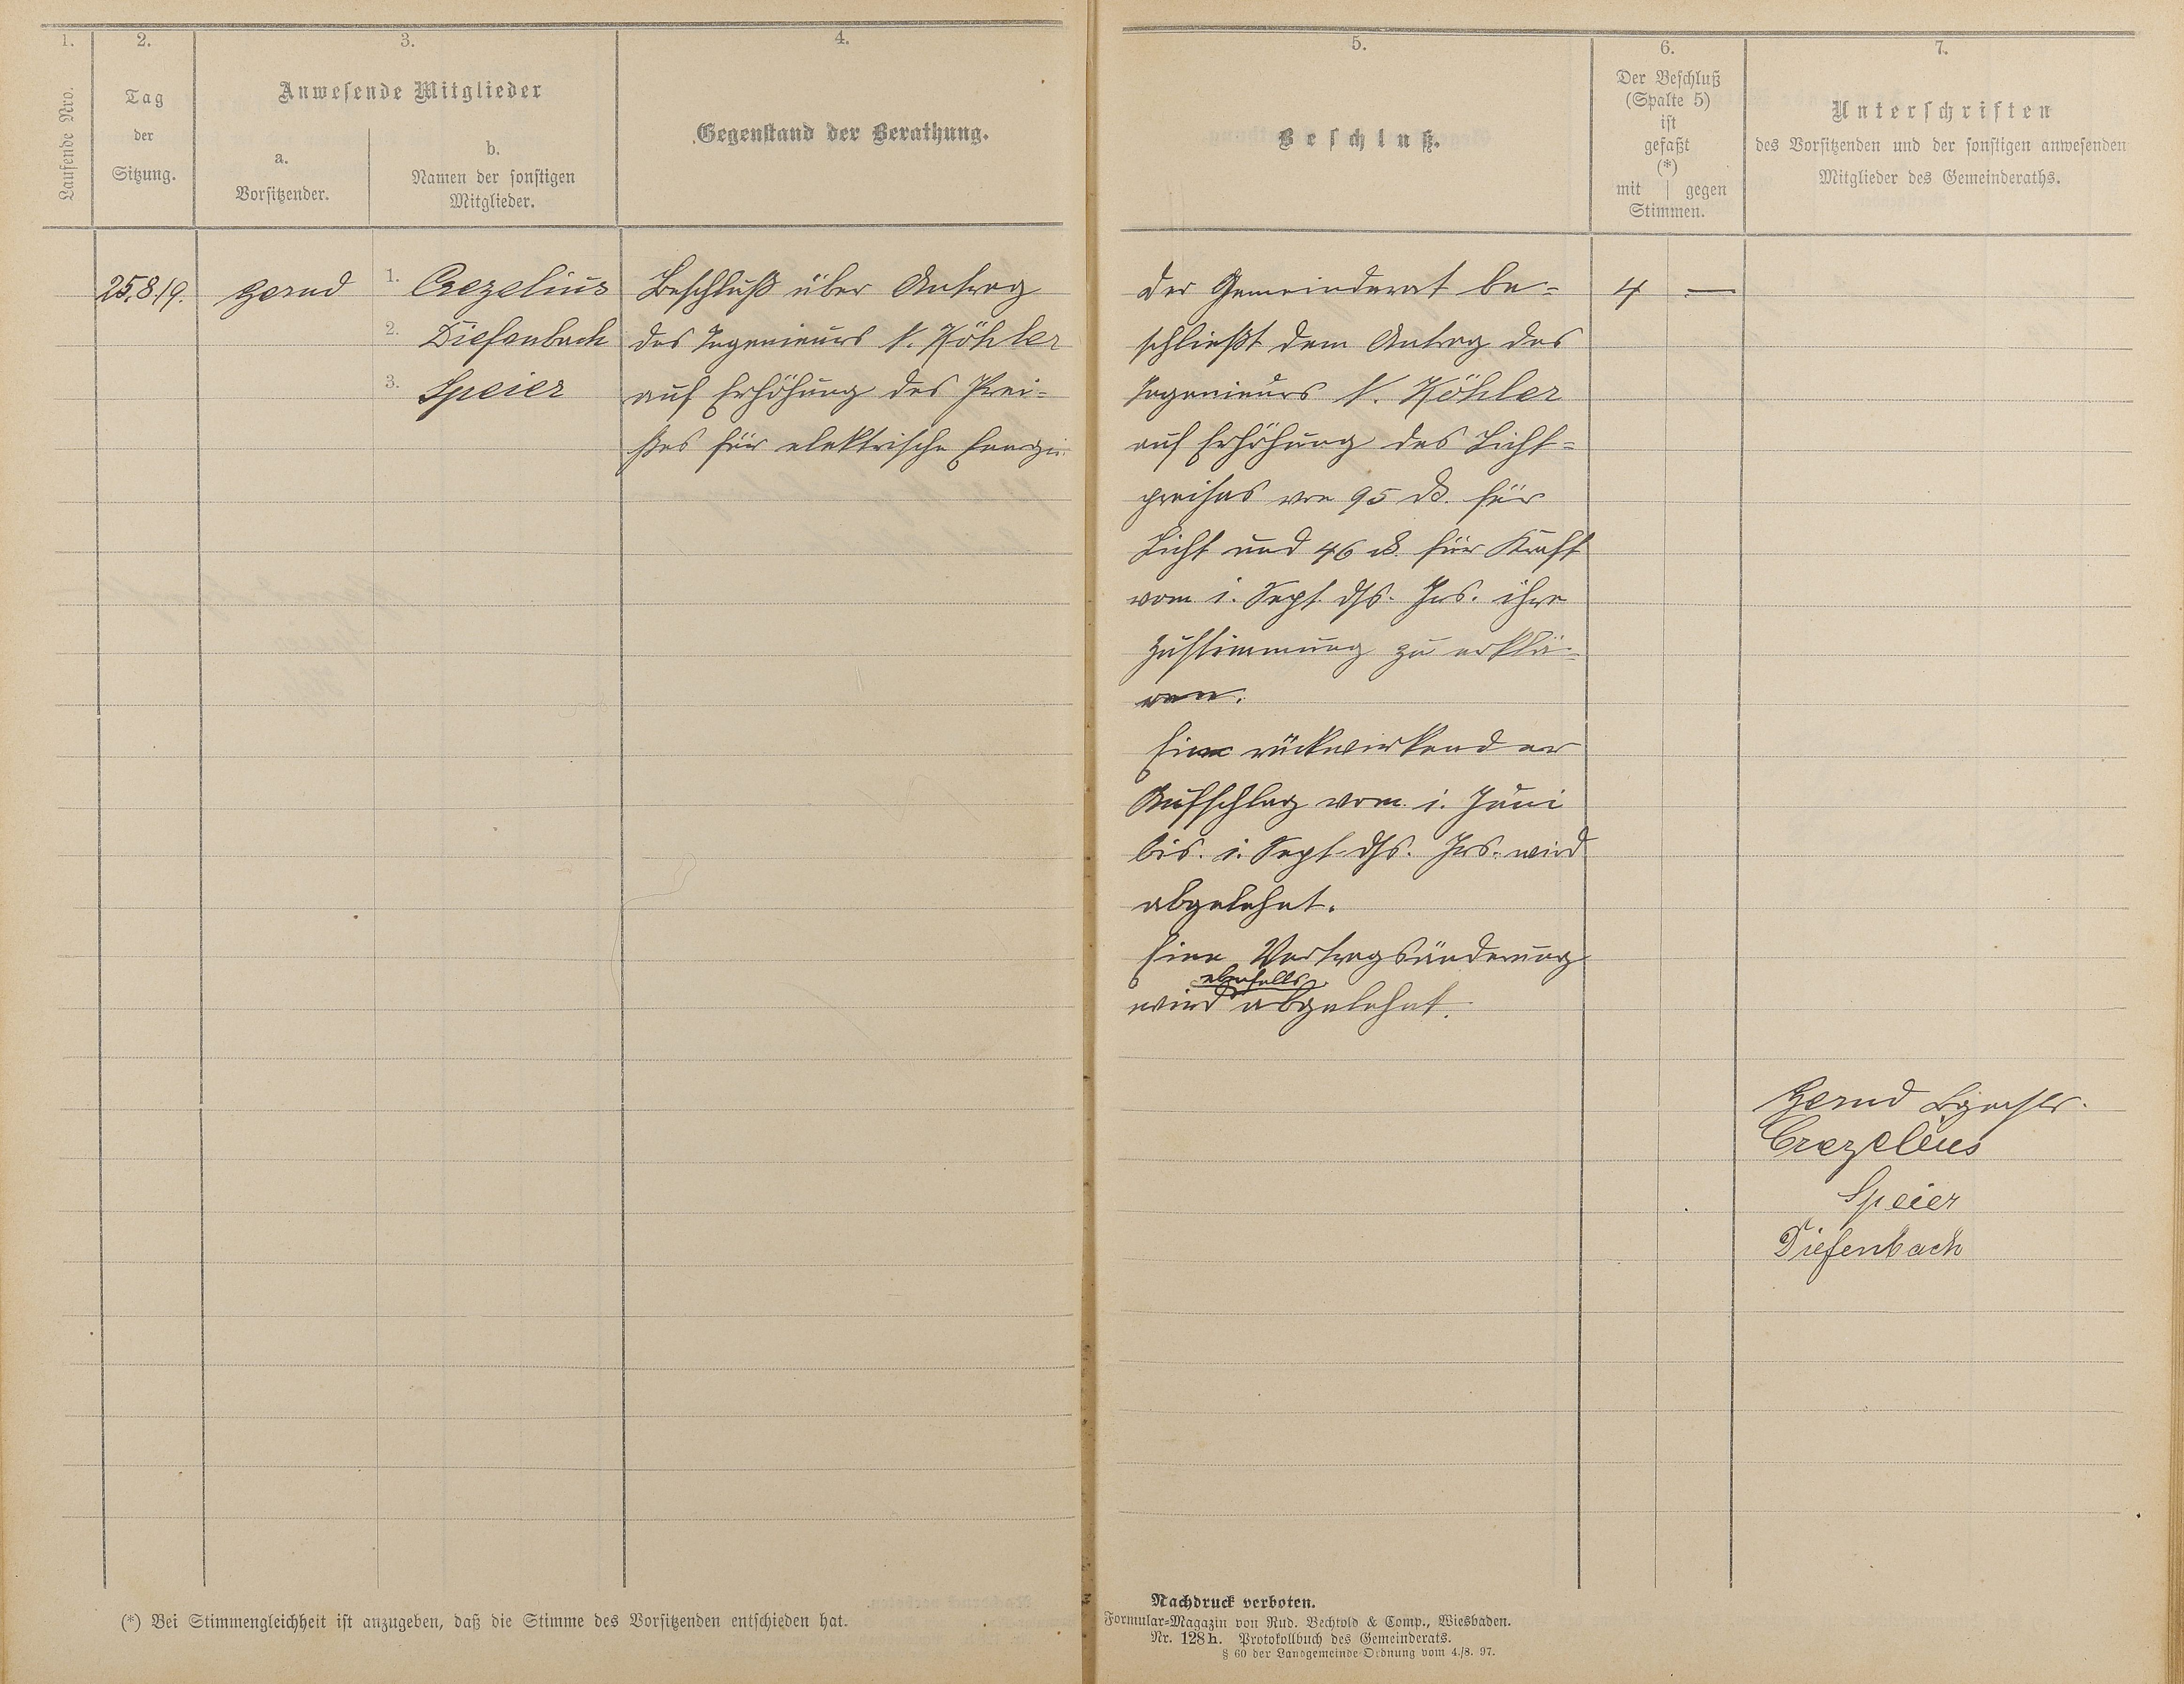 1.
Laufende Nro.
2.
Tag
der
Sitzung.
3.
Anwesende Mitglieder
a.
Vorsitzender.
b.
Namen der sonstigen
Mitglieder.
4.
Gegenstand der Berathung.
25.8.19.
Gernd
1. Crezelius
2. Diefenbach
3. Speier
Beschluß über Antrag
des Ingenieurs N. Köhler
auf Erhöhung des Prei-
ses für elektrische Energie
(*) Bei Stimmengleichheit ist anzugeben, daß die Stimme des Vorsitzenden entschieden hat.
5.
Beschluß.
6.
Der Beschluß
(Spalte 5)
ist
gefaßt
(*)
mit | gegen
Stimmen.
7.
Unterschriften
des Vorsitzenden und der sonstigen anwesenden
Mitglieder des Gemeinderaths.
Der Gemeinderat be-
schließt dem Antrag des
Ingenieurs N. Köhler
auf Erhöhung des Licht-
preises von 95 ₰ für
Licht und 46 ₰ für Kraft
vom 1. Sept. ds. Jrs. ihre
Zustimmung zu erklä-
ren.
Ein rückwirkender
Aufschlag vom 1. Juni
bis 1. Sept. ds. Jrs. wird
abgelehnt.
Eine Vertragsänderung
ebenfalls
wird abgelehnt.
4 —
Gernd Bgmstr.
Crezelius
Speier
Diefenbach
Nachdruck verboten.
Formular-Magazin von Rud. Bechtold & Comp., Wiesbaden.
Nr. 128h. Protokollbuch des Gemeinderats.
§ 60 der Landgemeinde-Ordnung vom 4./8. 97.